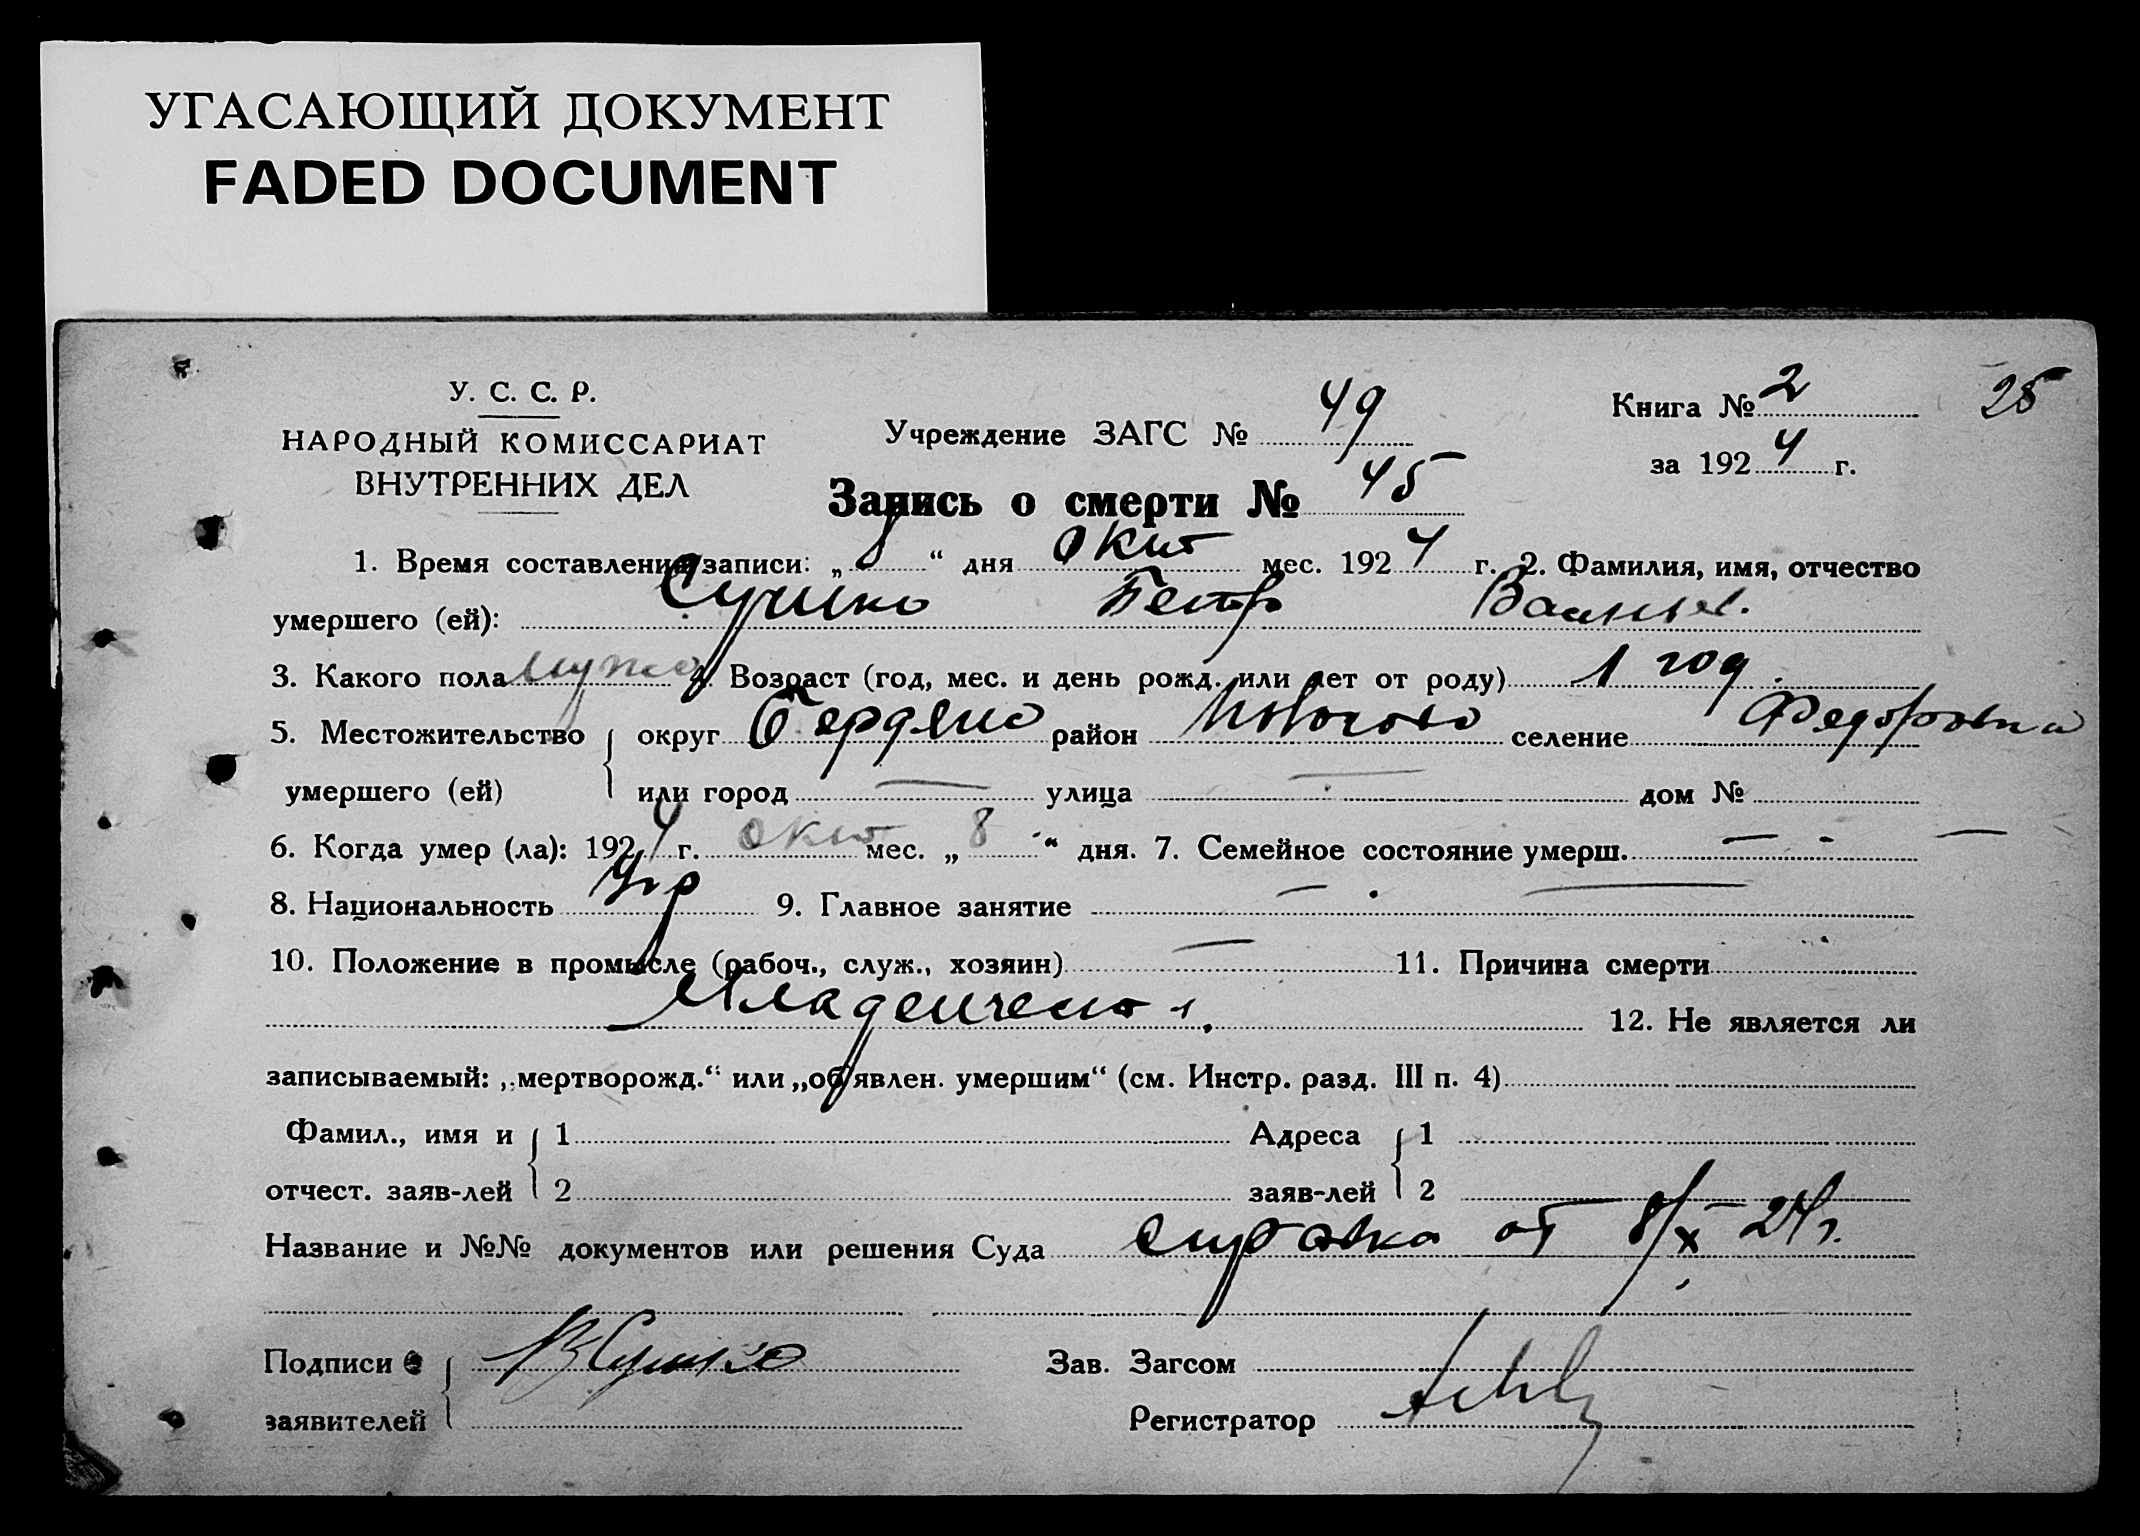 УГАСАЮЩИЙ ДОКУМЕНТ
FADED DOCUMENT
У. С. С. Р.
НАРОДНЫЙ КОМИССАРИАТ
ВНУТРЕННИХ ДЕЛ
Учреждение ЗАГС № 49
Книга № 2
25
за 1924 г.
Запись о смерти № 45
1. Время составления записи: „8“ дня Окт мес. 1924 г. 2. Фамилия, имя, отчество
умершего (ей): Сушко Петр Васильев.
3. Какого пола мужс 4. Возраст (год, мес. и день рожд. или лет от роду) 1 год.
5. Местожительство округ Бердянс район селение Федоровка
умершего (ей) или город — улица — дом №
6. Когда умер (ла): 1924 г. окт мес. „8“ дня. 7. Семейное состояние умерш. — —
8. Национальность Укр 9. Главное занятие — —
10. Положение в промысле (рабоч., служ., хозяин) — 11. Причина смерти
Младенческ 12. Не является ли
записываемый: „мертворожд.“ или „об'явлен. умершим“ (см. Инстр. разд. III п. 4)
Фамил., имя и 1 Адреса 1
отчест. заяв-лей 2 заяв-лей 2
Название и №№ документов или решения Суда справка от 8/X 24 г.
Подписи В Сушко Зав. Загсом
заявителей Регистратор